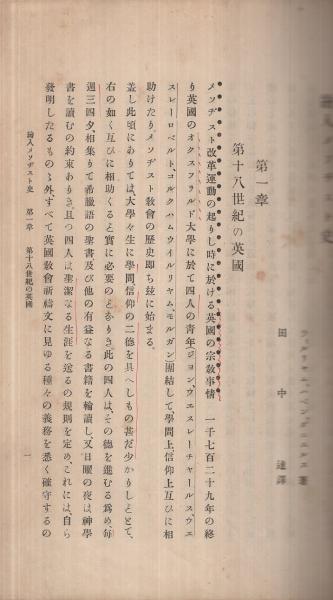 第一章
第十八世紀の英國
メソヂスト改革運動の起りし時に於ける英國の宗教事情　一千七百二十九年の終
り英國のオクスフヲルド大學に於て四人の青年(ジョン、ウエスレーチャールス、ウエ
スレーロベルト、コルクハムウイルリヤム、モルガン)團結して學問上、信仰上互ひに相
助けたり。メソヂスト教會の歴史即ち玆に始まる。
蓋し此頃にありては、大學々生に學問、信仰の二德を具へしもの甚だ少かりしことて、
右の如く互ひに相助くること實に必要のことなりき。此の四人は、その德を進むる爲め、每
週三四夕、相集りて希臘語の聖書及び他の有益なる書籍を輪讀し、又日曜の夜は神學
書を讀むの約束ありき。且つ四人は聖潔なる生涯を送るの規則を定め、これには、自ら
發明したるものゝ外すべて英國教會祈禱文に見ゆる種々の義務を悉く確守するの
諭入メソヂスト史　第一章　第十八世紀の英國
一
田中　達譯